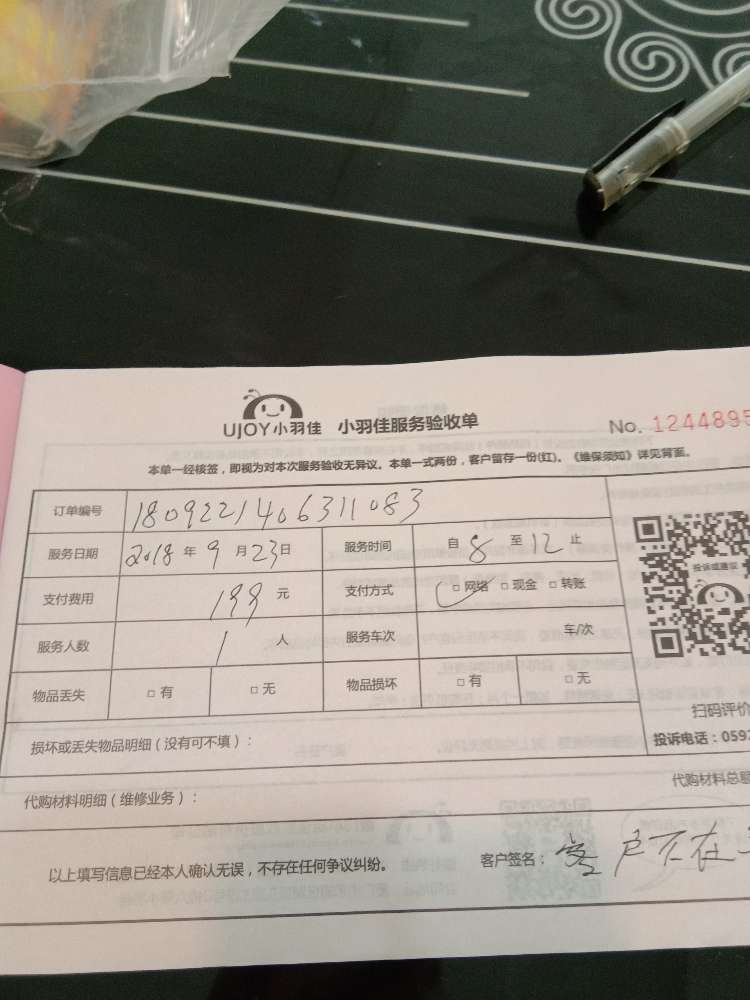 UJOY小羽佳 小羽佳服务验收单
No. 1244895
本单一经核签，即视为对本次服务验收无异议。本单一式两份，客户留存一份(红)。《维保须知》详见背面。
订单编号 1809221406311083
服务日期 2018 年 9 月 23 日 服务时间 自 8 至 12 止
投诉或建议
支付费用 199 元 支付方式 □ 网络 □ 现金 □ 转账
服务人数 1 人 服务车次 车/次
物品丢失 □ 有 □ 无 物品损坏 □ 有 □ 无
扫码评价
损坏或丢失物品明细（没有可不填）：
投诉电话：059
代购材料明细（维修业务）：
代购材料总
以上填写信息已经本人确认无误，不存在任何争议纠纷。 客户签名： 客户不在